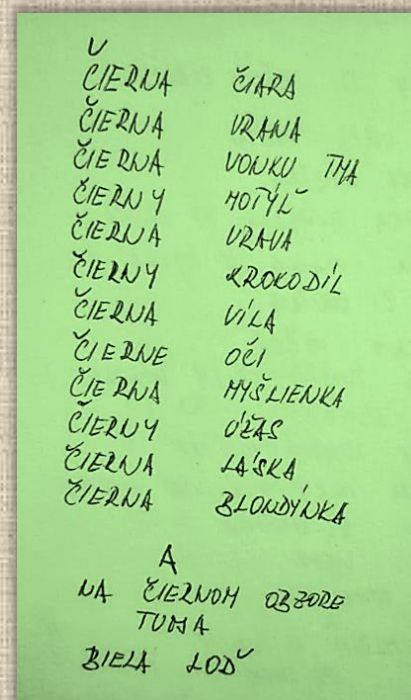 ČIERNA ČIARA
ČIERNA VRANA
ČIERNA VONKU TMA
ČIERNY MOTÝĽ
ČIERNA VRAVA
ČIERNY KROKODÍL
ČIERNA VÍLA
ČIERNE OČI
ČIERNA MYŠLIENKA
ČIERNY ÚŽAS
ČIERNA LÁSKA
ČIERNA BLONDÝNKA
A
NA ČIERNOM OBZORE
BIELA LOĎ